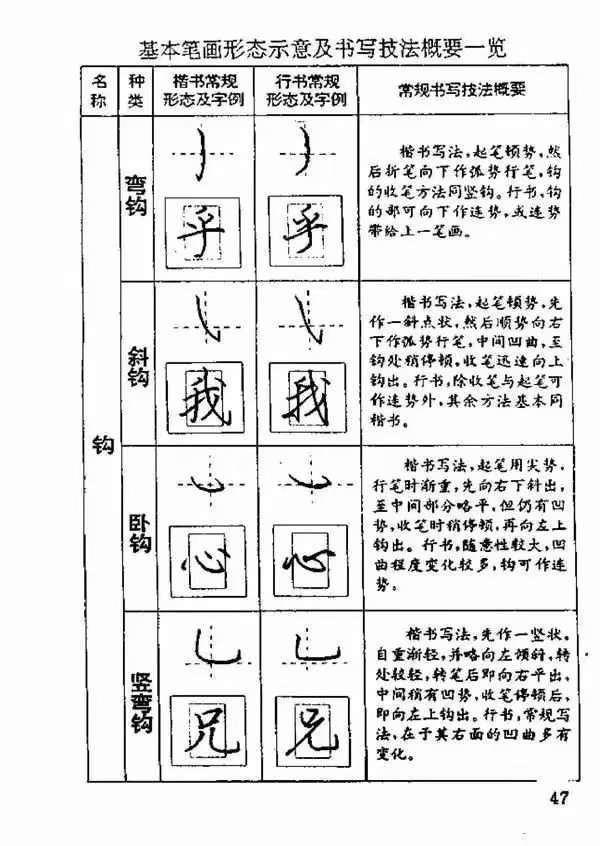 基本笔画形态示意及书写技法概要一览
名称
种类
楷书常规形态及字例
行书常规形态及字例
常规书写技法概要
钩
弯钩
乎
乎
楷书写法,起笔顿势,然
后折笔向下作弧势行笔,钩
的收笔方法同竖钩。行书,钩
的部可向下作连势,或连势
带给上一笔画。
斜钩
我
我
楷书写法,起笔顿势,先
作一斜点状,然后顺势向右
下作弧势行笔,中间凹曲,至
钩处稍停顿,收笔迅速向上
钩出。行书,除收笔与起笔可
作连势外,其余方法基本同
楷书。
卧钩
心
心
楷书写法,起笔用尖势,
行笔时渐重,先向右下斜出,
至中间部分略平,但仍有凹
势,收笔时稍停顿,再向左上
钩出。行书,随意性较大,凹
曲程度变化较多,钩可作连
势。
竖弯钩
兄
兄
楷书写法,先作一竖状,
自重渐轻,并略向左倾斜,转
处较轻,转笔后即向右平出,
中间稍有凹势,收笔停顿后,
即向左上钩出。行书,常规写
法,在于其右面的凹曲多有
变化。
47